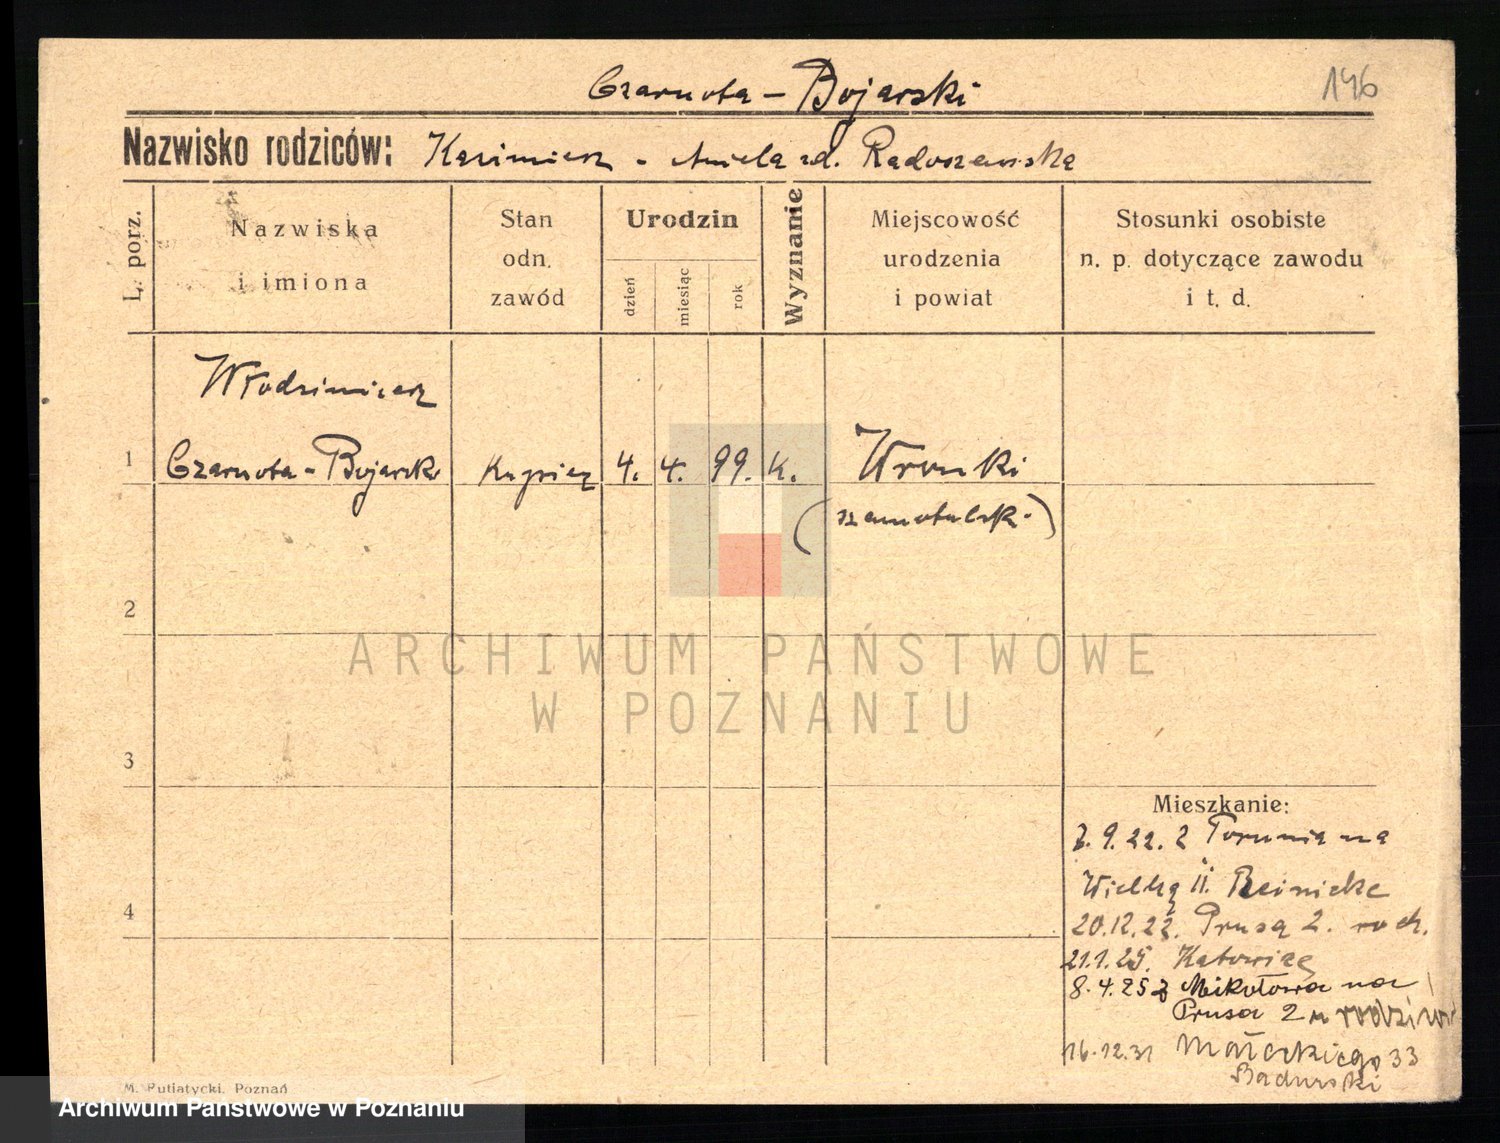 Czarnota - Bojarski
146
Nazwisko rodziców: Kazimierz - Aniela zd. Radoszewska
L. porz.
Nazwiska
i imiona
Stan
odn.
zawód
Urodzin
dzień
miesiąc
rok
Wyznanie
Miejscowość
urodzenia
i powiat
Stosunki osobiste
n. p. dotyczące zawodu
i t. d.
Włodzimierz
1 Czarnota - Bojarski Kupiec 4. 4. 99. K. Wronki
(szamotulski)
2
ARCHIWUM PAŃSTWOWE
W POZNANIU
3
4
Mieszkanie:
7. 9. 22. z Torunia na
Wielką 11. Reinicke
20.12.22. Prusa 2. rodz.
21.1.25. Katowice
8.4.25 z Mikołowa na
Prusa 2 u rodziców
16.12.31 Małeckiego 33
Badurski
M. Putiatycki, Poznań
Archiwum Państwowe w Poznaniu